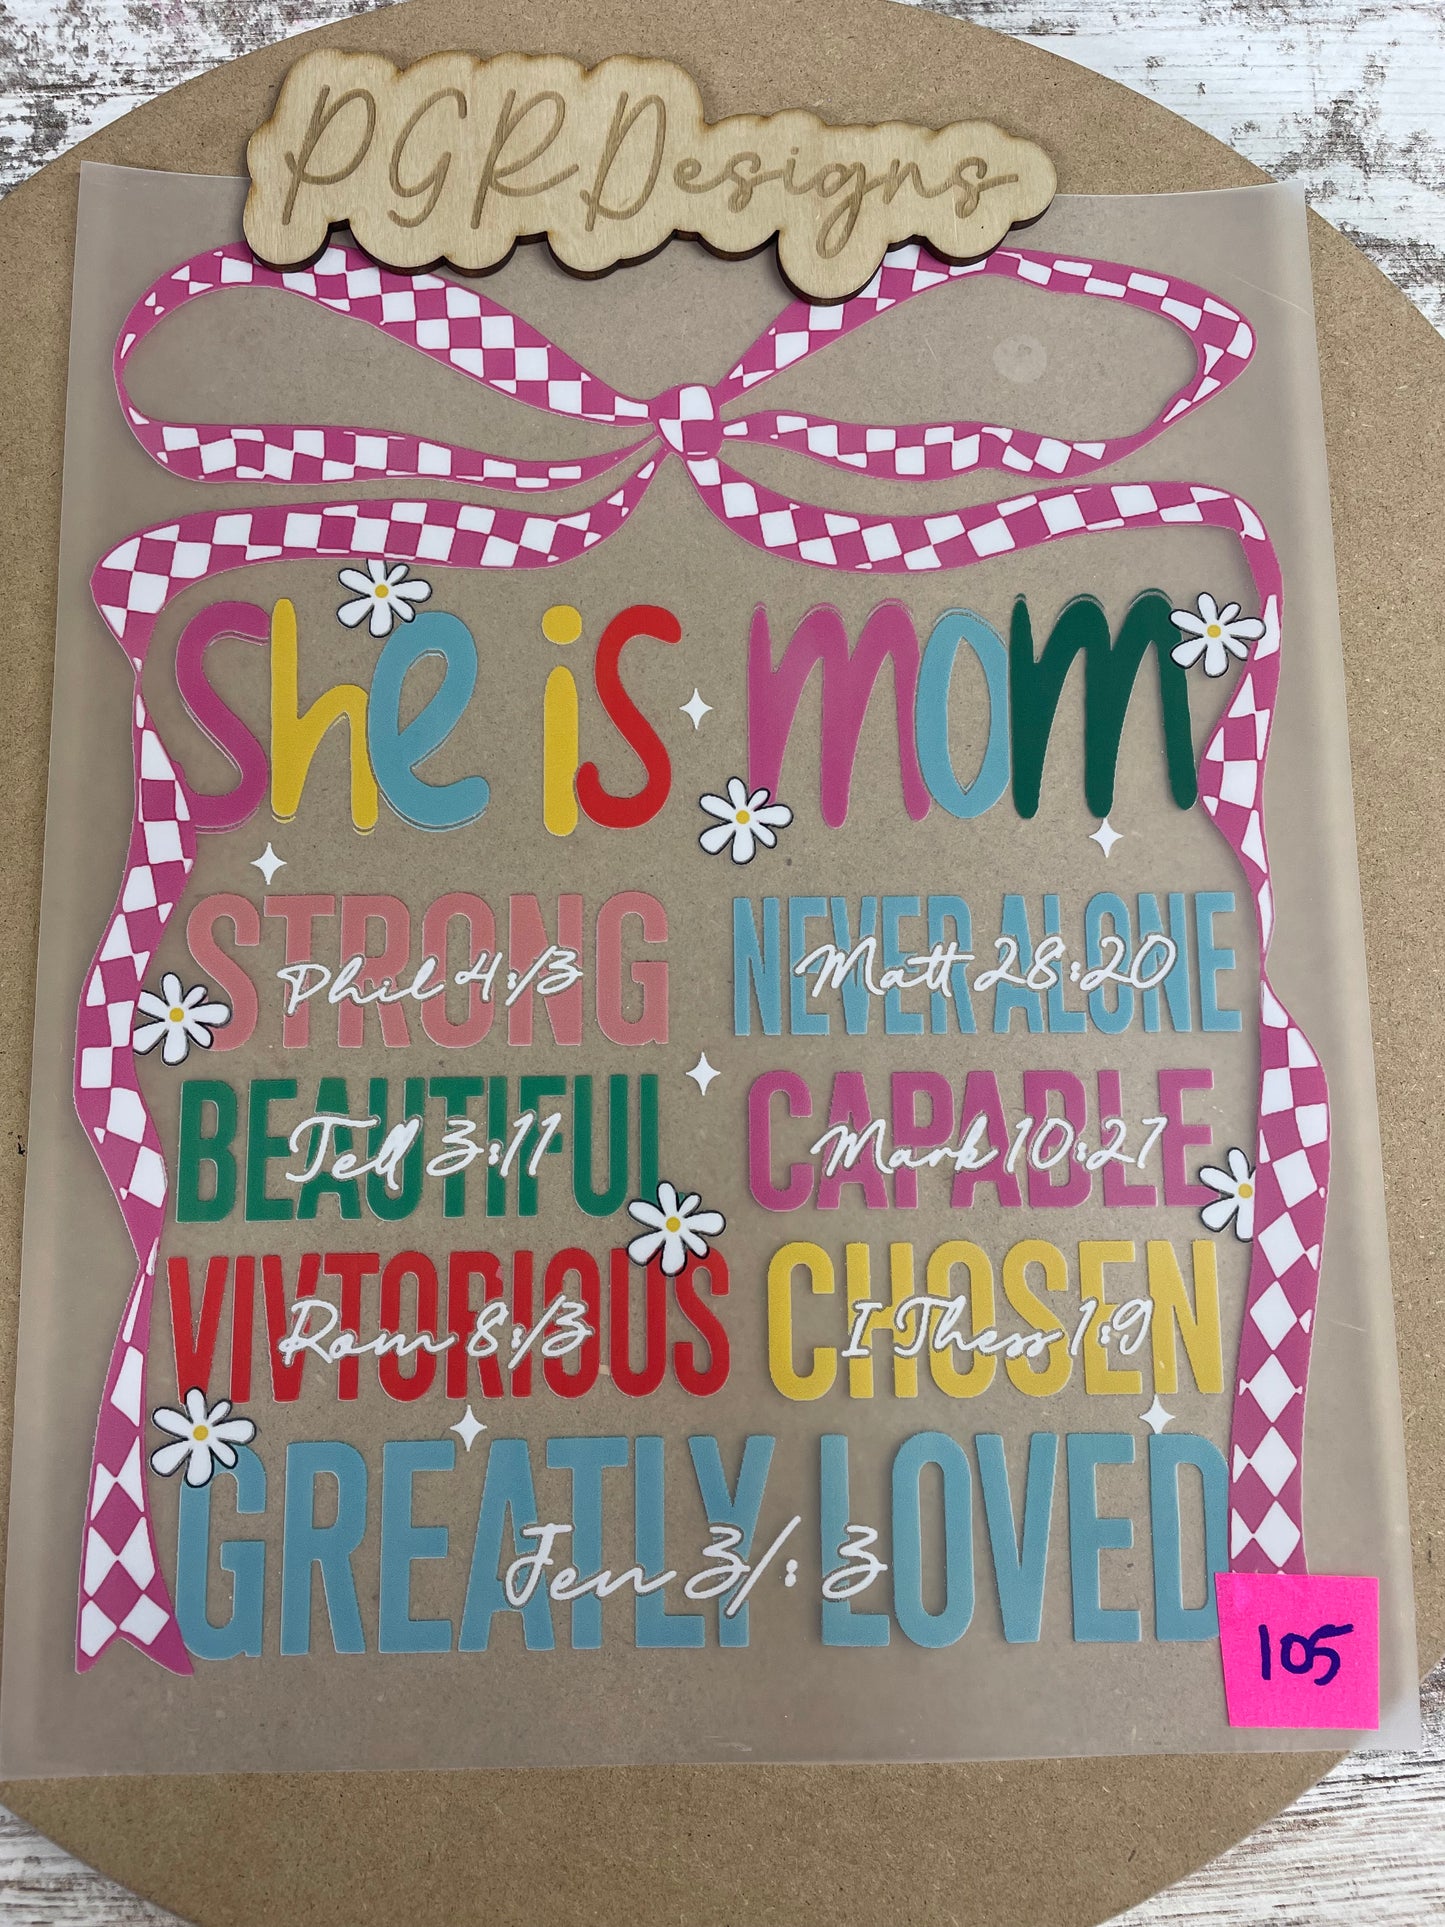 PGRDesigns
she is mom
STRONG NEVER ALONE
Phil 4:13 Matt 28:20
BEAUTIFUL CAPABLE
Tell 3:11 Mark 10:27
VIVTORIOUS CHOSEN
Rom 8:13 I Thess 1:9
GREATLY LOVED
Jen 31:3
105